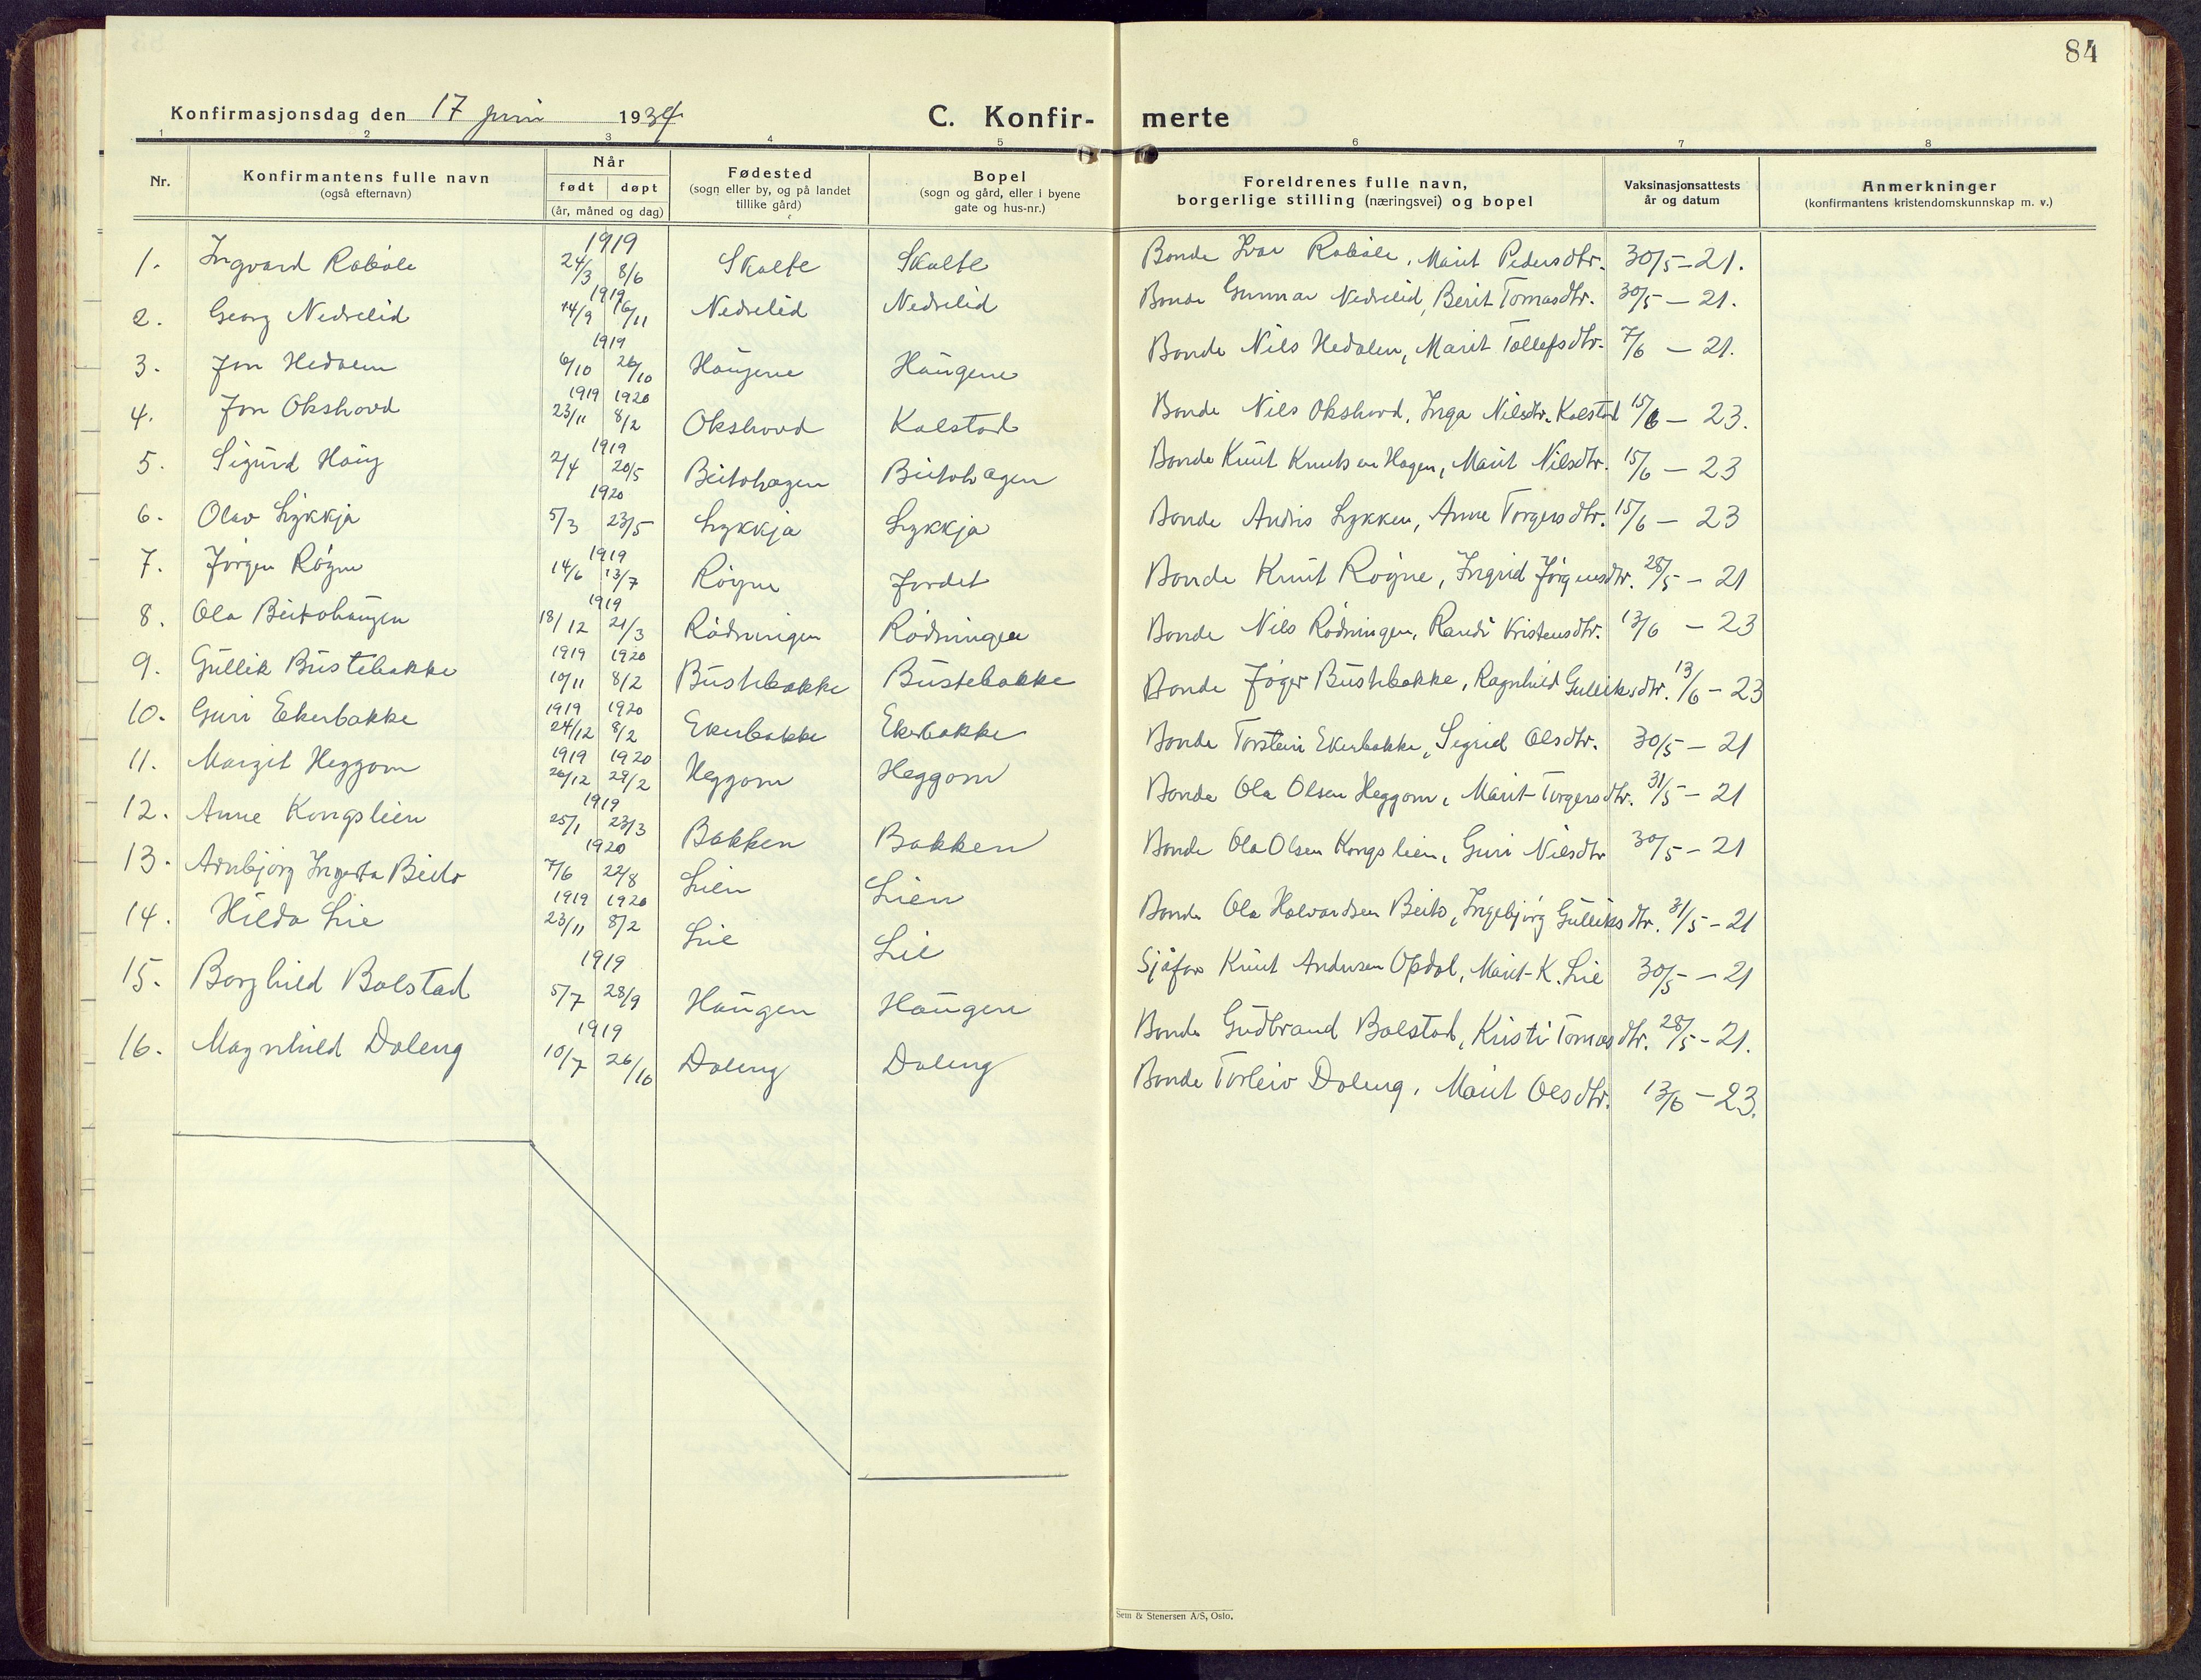 84
Konfirmasjonsdag den 17 juni 1934 C. Konfir- merte
1 2 3 4 5 6 7 8
Nr. Konfirmantens fulle navn (også efternavn) Når født døpt (år, måned og dag) Fødested (sogn eller by, og på landet tillike gård) Bopel (sogn og gård, eller i byene gate og hus-nr.) Foreldrenes fulle navn, borgerlige stilling (næringsvei) og bopel Vaksinasjonsattests år og datum Anmerkninger (konfirmantens kristendomskunnskap m. v.)
1. Ingvard Robøle 1919 24/3 8/6 Skolte Skolte Bonde Ivar Robøle, Marit Pedersdtr. 30/5 - 21.
2. Georg Nedrelid 1919 14/9 16/11 Nedrelid Nedrelid Bonde Gunnar Nedrelid, Berit Tomasdtr. 30/5 - 21.
3. Jon Hedalen 1919 6/10 26/10 Haugene Haugene Bonde Nils Hedalen, Marit Tollefsdtr. 7/6 - 21.
4. Jon Okshovd 1919 1920 23/11 8/2 Okshovd Kolstad Bonde Nils Okshovd, Inga Nilsdtr. Kolstad 15/6 - 23.
5. Sigurd Haug 1919 2/4 20/5 Beitohagen Beitohagen Bonde Knut Knutsen Hagen, Marit Nilsdtr. 15/6 - 23
6. Olav Lykkja 1920 5/3 23/5 Lykkja Lykkja Bonde Andris Lykken, Anne Torgersdtr. 15/6 - 23
7. Jørgen Røgne 1919 14/6 13/7 Røgne Jordet Bonde Knut Røgne, Ingrid Jørgensdtr. 28/5 - 21
8. Ola Beitohaugen 1919 18/12 21/3 Rødningen Rødningen Bonde Nils Rødningen, Randi Kristensdtr. 13/6 - 23
9. Gullik Bustebakke 1919 1920 10/11 8/2 Bustebakke Bustebakke Bonde Jøger Bustebakke, Ragnhild Gulliksdtr. 13/6 - 23
10. Guri Ekerbakke 1919 1920 24/12 8/2 Ekerbakke Ekerbakke Bonde Torstein Ekerbakke, Sigrid Olsdtr. 30/5 - 21
11. Margit Heggom 1919 1920 26/12 29/2 Heggom Heggom Bonde Ola Olsen Heggom, Marit Torgersdtr. 31/5 - 21
12. Anne Kongslien 1919 25/1 23/3 Bakken Bakken Bonde Ola Olsen Kongslien, Guri Nilsdtr 30/5 - 21
13. Arnbjørg Beito 1920 7/6 22/8 Lien Lien Bonde Ola Halvardsen Beito, Ingebjørg Gulliksdtr. 31/5 - 21
14. Hilda Lie 1919 1920 23/11 8/2 Lie Lie Sjåfør Knut Andersen Opdal, Marit K. Lie 30/5 - 21
15. Borghild Bolstad 1919 5/7 28/9 Haugen Haugen Bonde Gudbrand Bolstad, Kristi Tomasdtr. 28/5 - 21.
16. Magnhild Doleng 1919 10/7 26/10 Doleng Doleng Bonde Torleiv Doleng, Marit Olsdtr. 13/6 - 23.
Sem & Stenersen A/S, Oslo.